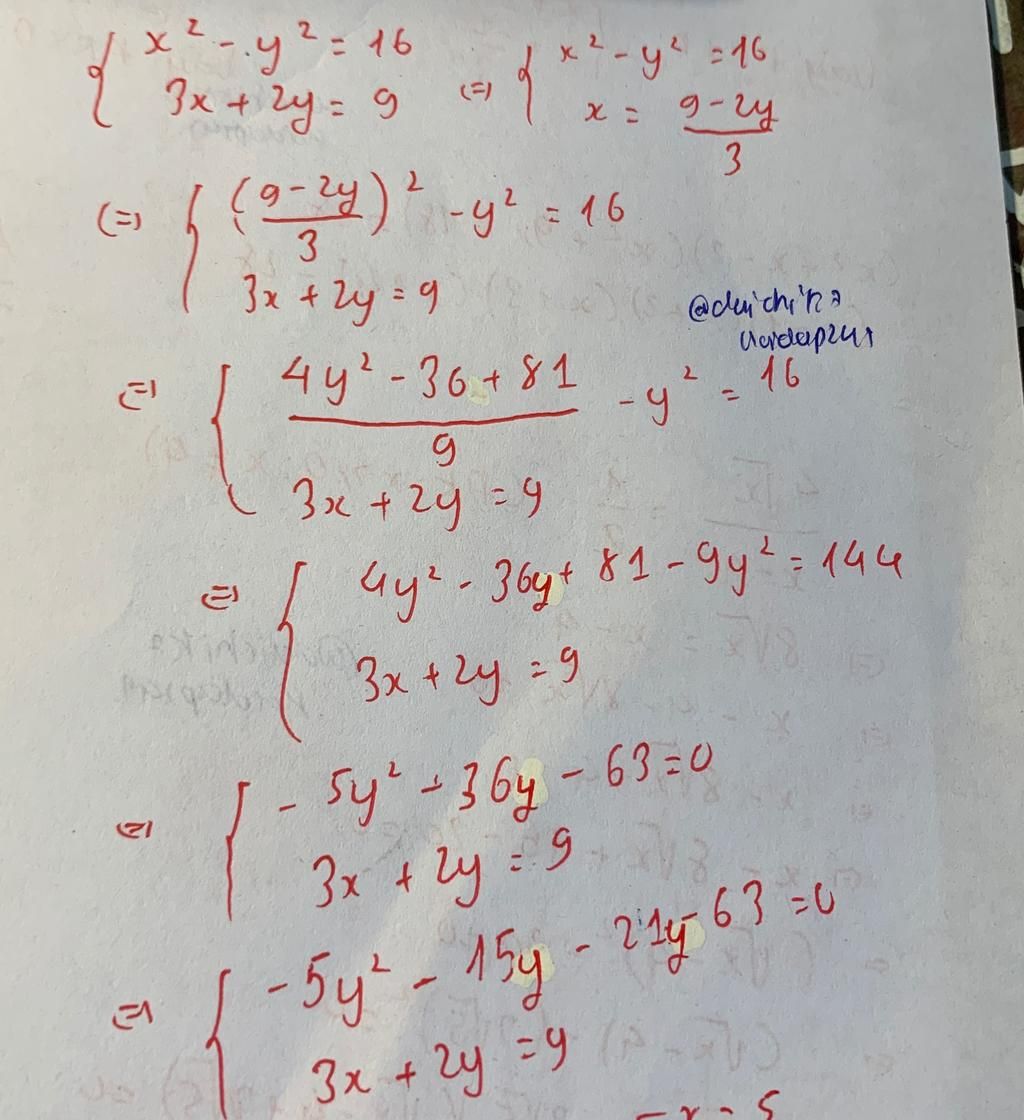 { x² - y² = 16 (=) { x² - y² = 16
3x + 2y = 9 x = (9 - 2y)/3
(=) { ((9 - 2y)/3)² - y² = 16
3x + 2y = 9
(=) { (4y² - 36 + 81)/9 - y² = 16
3x + 2y = 9
(=) { 4y² - 36y + 81 - 9y² = 144
3x + 2y = 9
(=) { - 5y² - 36y - 63 = 0
3x + 2y = 9
(=) { - 5y² - 15y - 21y - 63 = 0
3x + 2y = 9